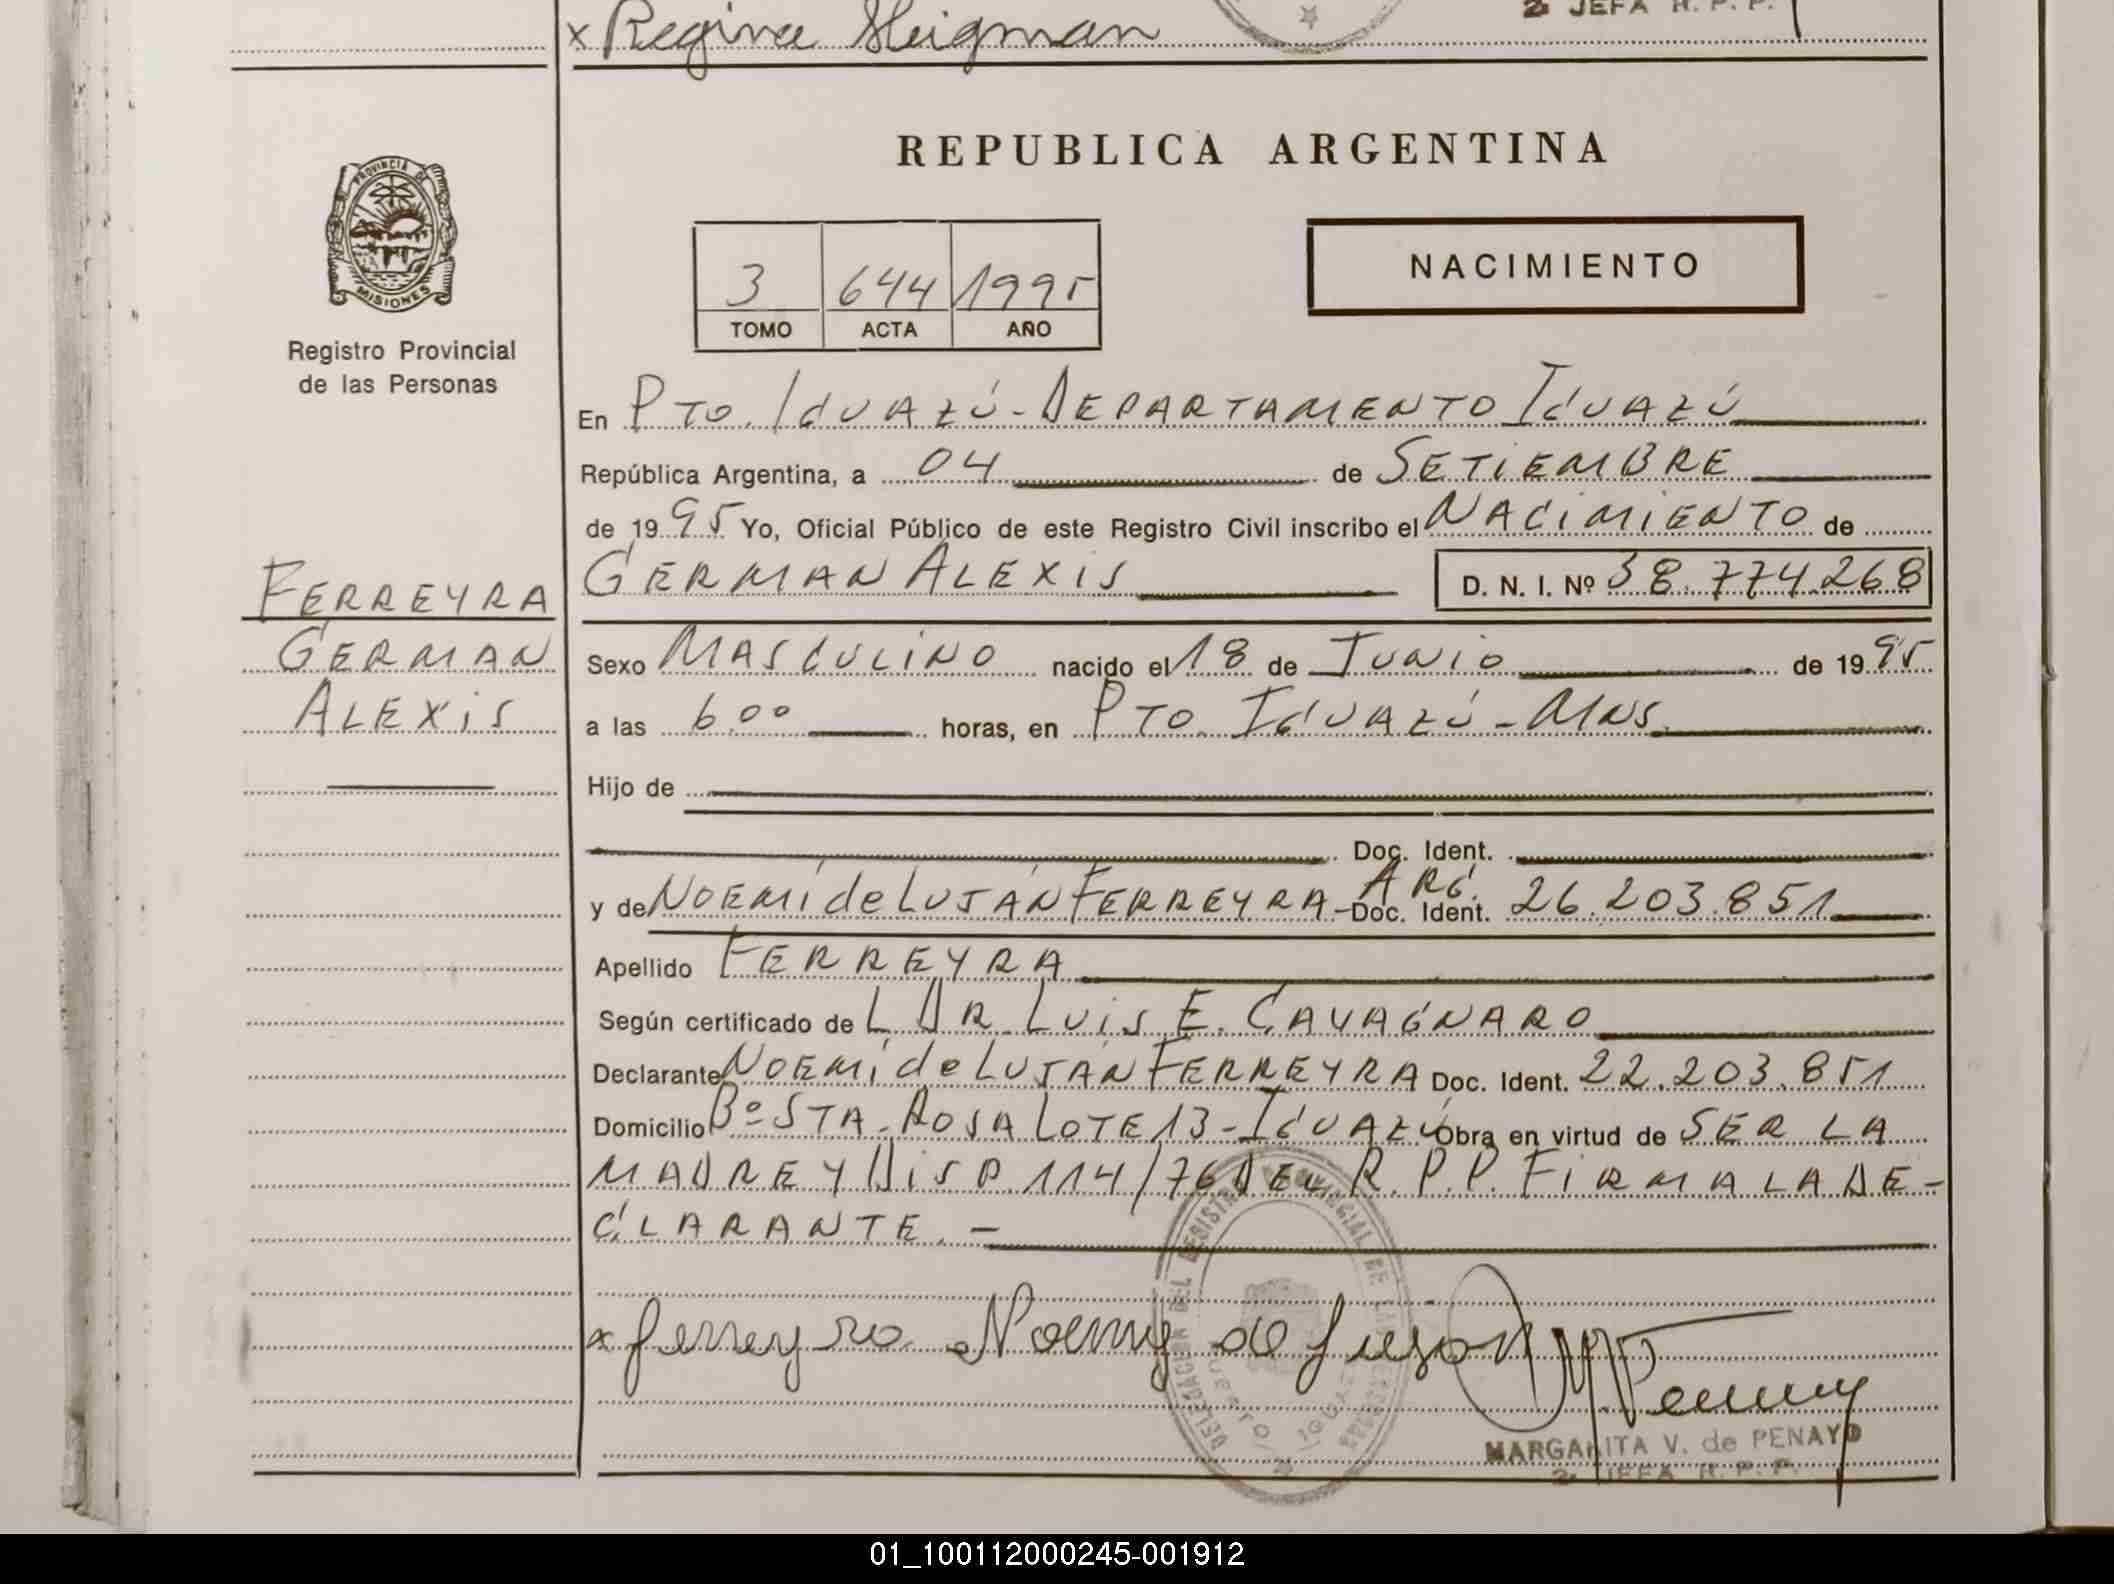 x Regina Sleigman
2a JEFA R. P. P.
PROVINCIA DE MISIONES
Registro Provincial
de las Personas
REPUBLICA ARGENTINA
3 644 1995
TOMO ACTA AÑO
NACIMIENTO
En PTO. IGUAZÚ - DEPARTAMENTO IGUAZÚ
República Argentina, a 04 de SETIEMBRE
de 1995 Yo, Oficial Público de este Registro Civil inscribo el NACIMIENTO de
GERMAN ALEXIS D. N. I. Nº 38.774.268
FERREYRA
GERMAN
ALEXIS
Sexo MASCULINO nacido el 18 de JUNIO de 1995
a las 6°° horas, en PTO. IGUAZÚ - MNS.
Hijo de
Doc. Ident.
y de NOEMÍ de LUJÁN FERREYRA - ARG. Doc. Ident. 26.203.851
Apellido FERREYRA
Según certificado de L DR. LUIS E. CAVAGNARO
Declarante NOEMÍ de LUJÁN FERREYRA Doc. Ident. 22.203.851
Domicilio Bº STA. ROSA LOTE 13 - IGUAZÚ Obra en virtud de SER LA
MADRE Y DISP 114/76 DEL R. P. P. FIRMA LA DE-
CLARANTE. -
x Ferreyra Noemy de Lujan
DELEGACION DEL REGISTRO PROVINCIAL DE LAS PERSONAS
PUERTO IGUAZU
MARGARITA V. de PENAYO
2a JEFA R. P. P.
01_100112000245-001912